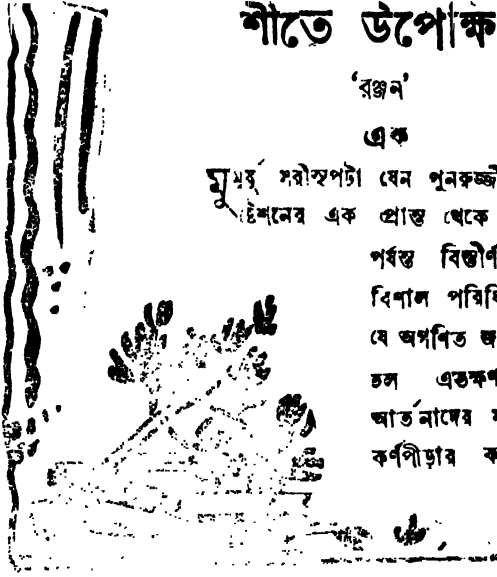 শীতে উপেক্ষ
‘রঞ্জন’
এক
মুমূর্ষু সরীসৃপটা যেন পুনরুজ্জী
ষ্টেশনের এক প্রান্ত থেকে
পর্যন্ত বিস্তীর্ণ
বিশাল পরিধি
যে অগণিত জ
হল এতক্ষণ
আর্তনাদের
কর্ণপীড়ার ক